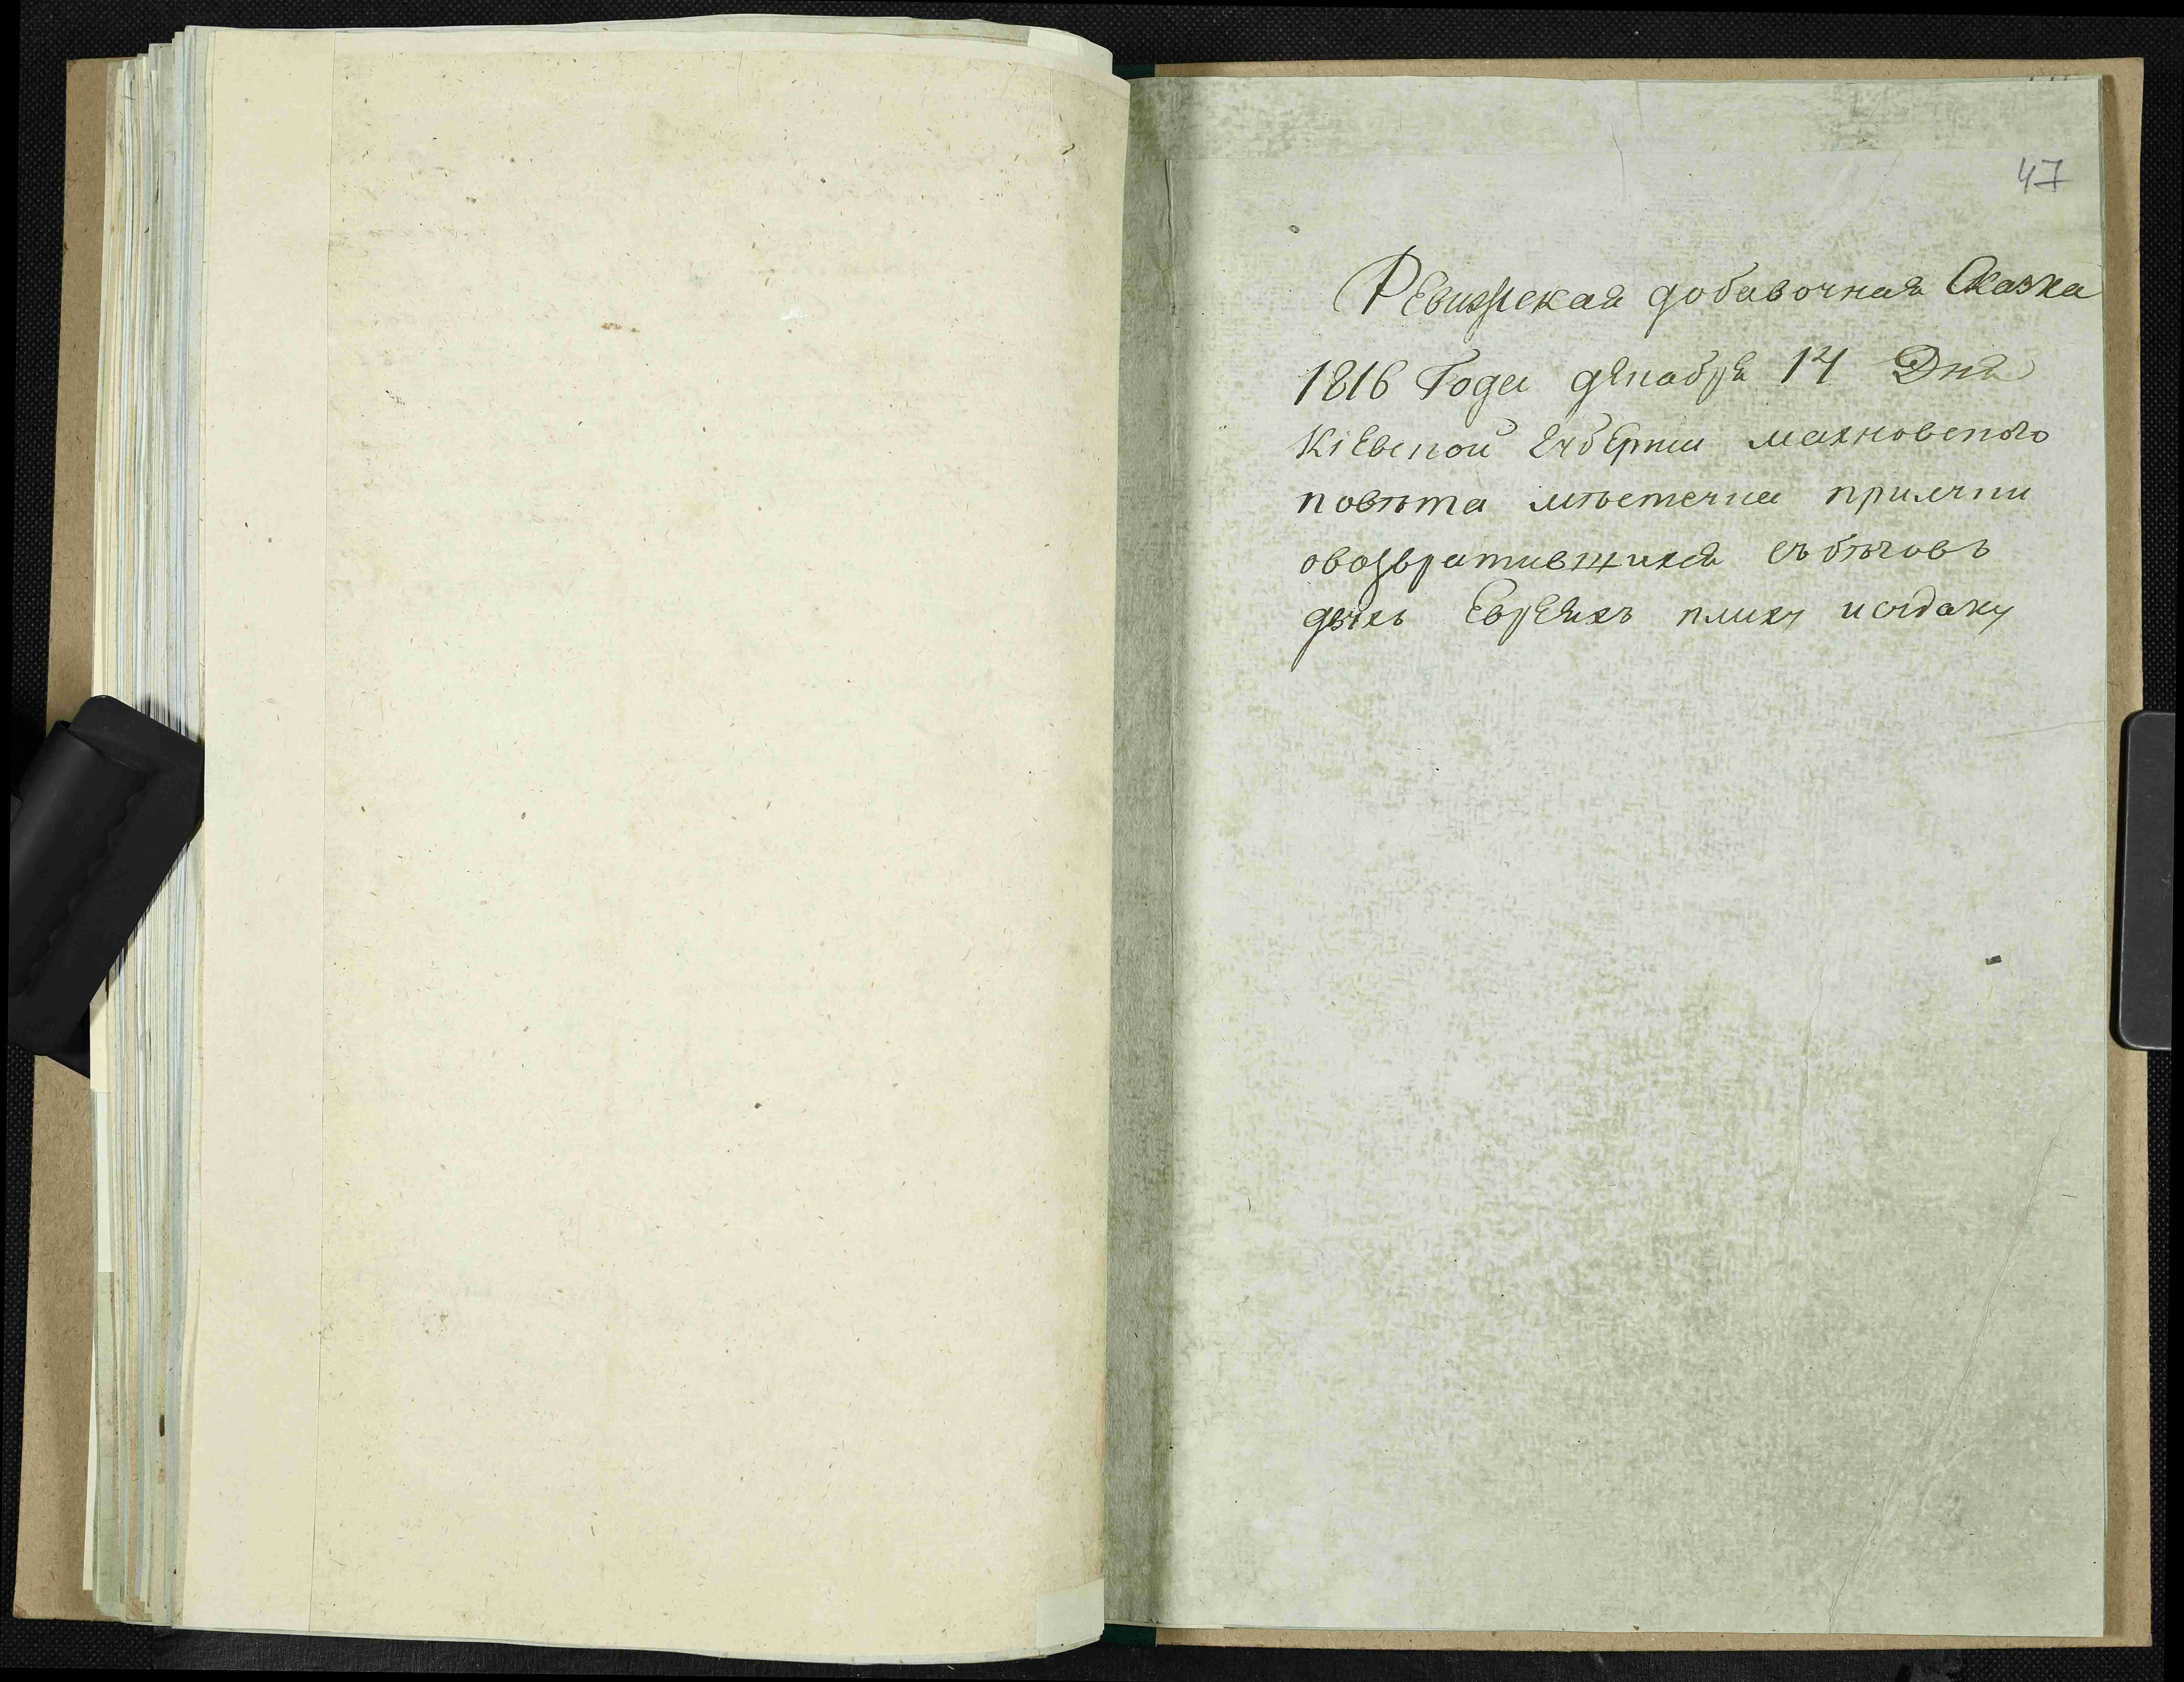 47
Ревизская добавочная Сказка
1816 Года декабря 14 Дня
Кіевской Губерніи махновского
повѣта мѣстечка прилуки
овозвратившихся съ бѣговъ
двухъ Евреяхъ